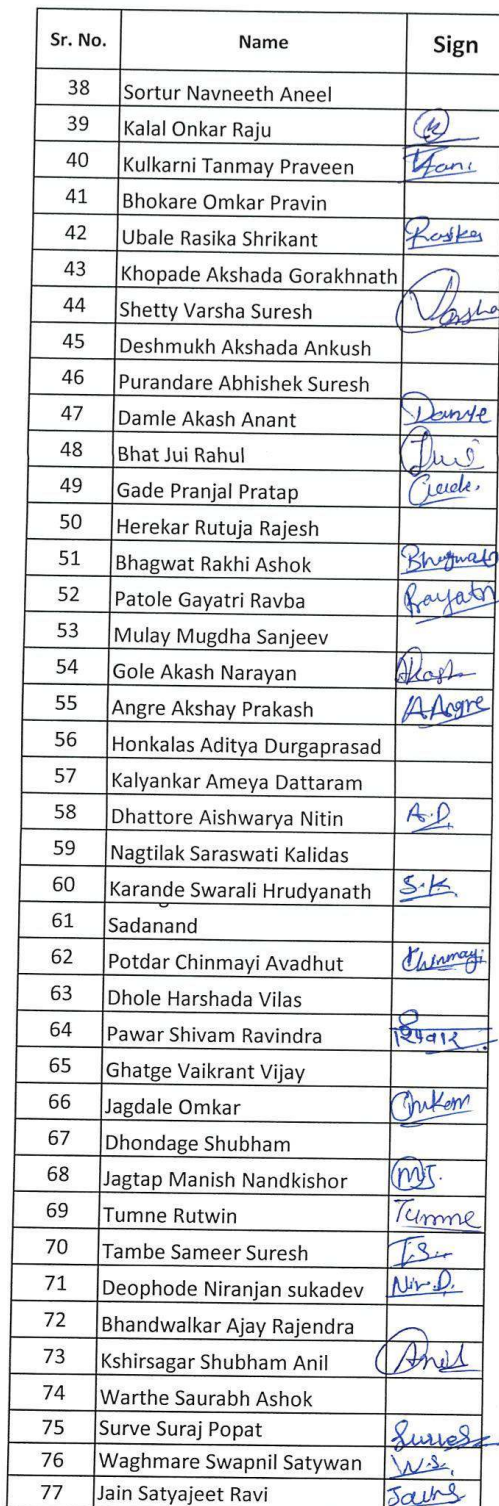 Sr. No. Name Sign
38 Sortur Navneeth Aneel
39 Kalal Onkar Raju
40 Kulkarni Tanmay Praveen
41 Bhokare Omkar Pravin
42 Ubale Rasika Shrikant
43 Khopade Akshada Gorakhnath
44 Shetty Varsha Suresh Varsha
45 Deshmukh Akshada Ankush
46 Purandare Abhishek Suresh
47 Damle Akash Anant
48 Bhat Jui Rahul Jui
49 Gade Pranjal Pratap
50 Herekar Rutuja Rajesh
51 Bhagwat Rakhi Ashok Bhagwat
52 Patole Gayatri Ravba Gayatri
53 Mulay Mugdha Sanjeev
54 Gole Akash Narayan Akash
55 Angre Akshay Prakash A.Angre
56 Honkalas Aditya Durgaprasad
57 Kalyankar Ameya Dattaram
58 Dhattore Aishwarya Nitin A.D.
59 Nagtilak Saraswati Kalidas
60 Karande Swarali Hrudyanath S.K.
61 Sadanand
62 Potdar Chinmayi Avadhut Chinmayi
63 Dhole Harshada Vilas
64 Pawar Shivam Ravindra
65 Ghatge Vaikrant Vijay
66 Jagdale Omkar Omkar
67 Dhondage Shubham
68 Jagtap Manish Nandkishor MJ.
69 Tumne Rutwin Tumne
70 Tambe Sameer Suresh T.S.
71 Deophode Niranjan sukadev Nir.D.
72 Bhandwalkar Ajay Rajendra
73 Kshirsagar Shubham Anil Anil
74 Warthe Saurabh Ashok
75 Surve Suraj Popat
76 Waghmare Swapnil Satywan W.S.
77 Jain Satyajeet Ravi